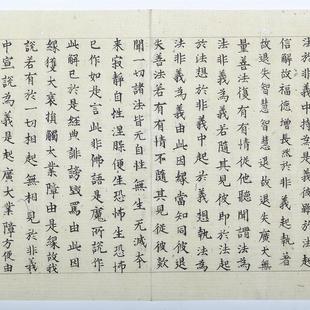 於非義中持為是義彼雖於法起
信解故福德增長然於非義起執著
故退失智慧智慧退故退失廣大無
量善法復有有情從他聽聞謂法為
法非義為義若隨其見彼即於法起
於法想於非義中起於義想執法為
法非義為義由此因緣當知同彼退
失善法若有有情不隨其見從彼欻
聞一切諸法皆無自性無生無滅本
来寂靜自性涅槃便生恐怖生恐怖
已作如是言此非佛語是魔所說作
此解已於是經典誹謗毀罵由此因
緣獲大衰損觸大業障由是緣故我
說若有於一切相起無相見於非義
中宣說為義是起廣大業障方便由